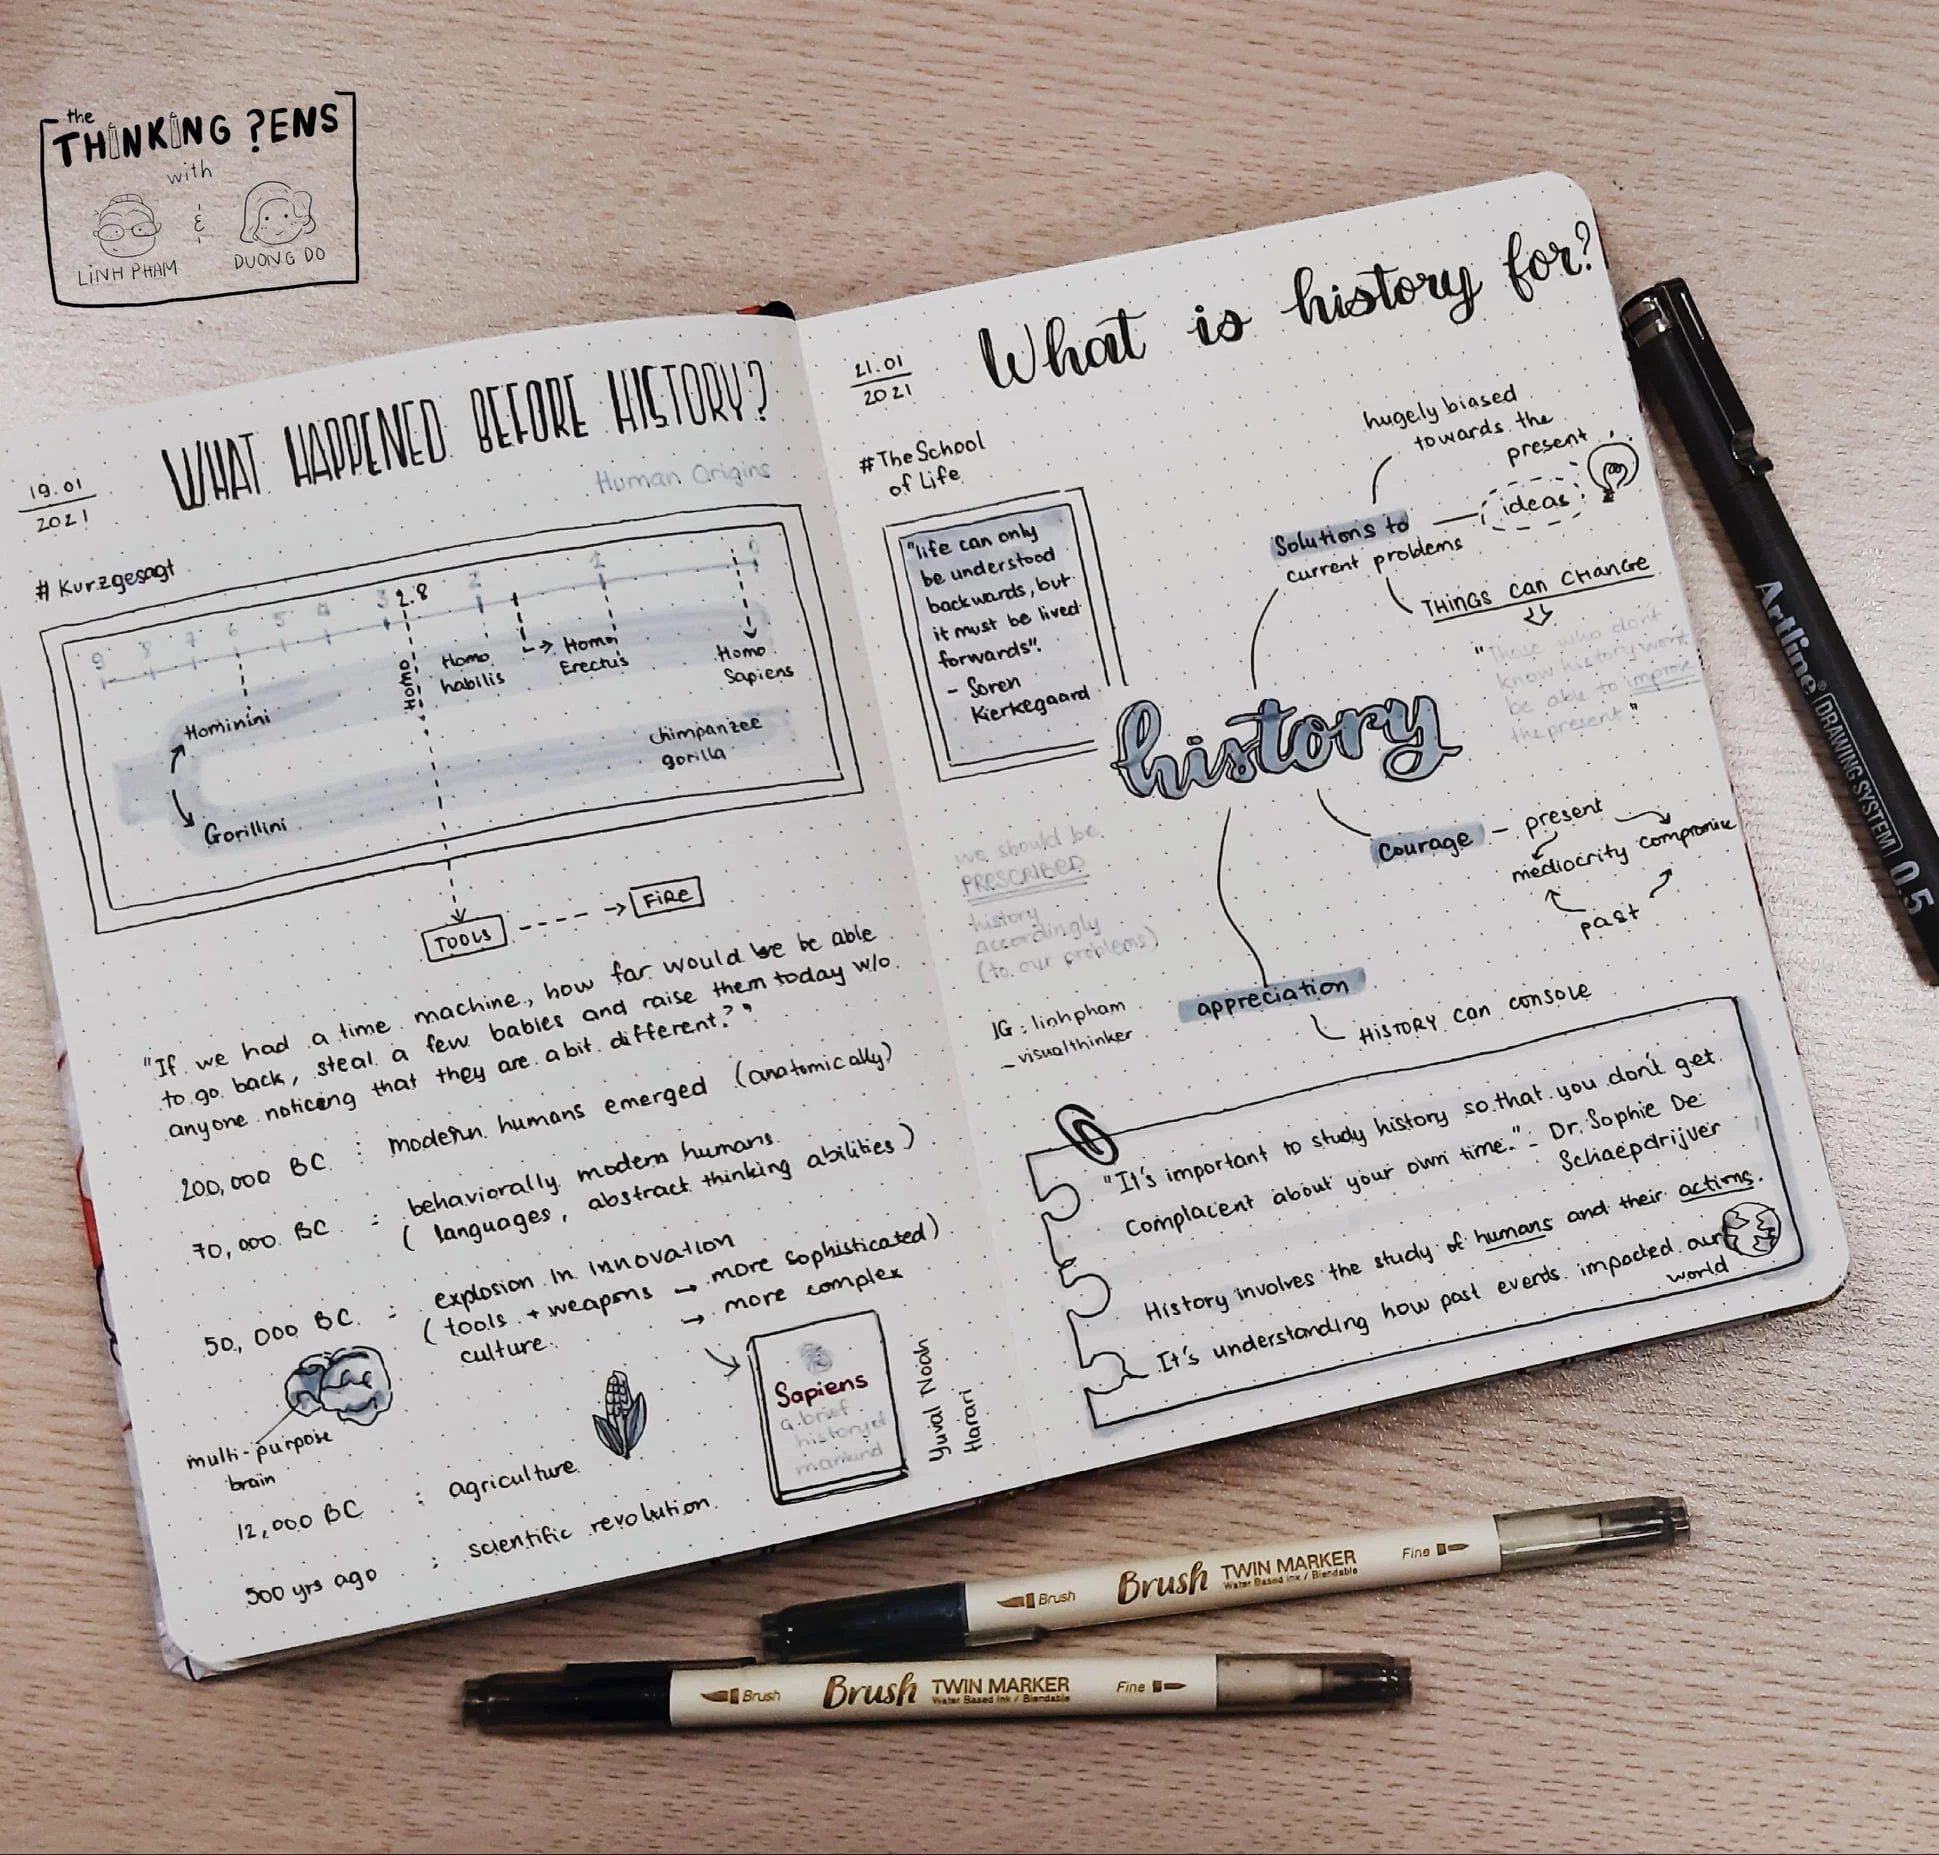 the
THINKING ?ENS
with
&
LINH PHAM
DUONG DO
WHAT HAPPENED BEFORE HISTORY?
Human Origins
19.01
2021
# Kurzgesagt
9 8 7 6 5 4 3 2.8 2 1 0
Homo
Homo
habilis
Homo
Erectus
Homo
Sapiens
Hominini
chimpanzee
gorilla
Gorillini
TOOLS
FIRE
"If we had a time machine, how far would we be able
to go back, steal a few babies and raise them today w/o
anyone noticing that they are a bit different?"
200,000 BC : modern humans emerged (anatomically)
70,000 BC : behaviorally modern humans
( languages, abstract thinking abilities)
50,000 BC : explosion in innovation
( tools + weapons → more sophisticated)
culture → more complex
multi-purpose
brain
12,000 BC : agriculture
500 yrs ago : scientific revolution
Sapiens
a brief
history of
mankind
Yuval Noah
Harari
21.01
2021
What is history for?
#The School
of Life
"life can only
be understood
backwards, but
it must be lived
forwards".
- Soren
Kierkegaard
history
Solutions to
current problems
hugely biased
towards the
present
ideas
THINGS CAN CHANGE
"Those who don't
know history won't
be able to improve
the present"
courage - present
mediocrity compromise
past
we should be
PRESCRIBED
history
accordingly
(to our problems)
appreciation
HISTORY CAN CONSOLE
IG : linhpham
_visualthinker
"It's important to study history so that you don't get
complacent about your own time." - Dr. Sophie De
Schaepdrijver
History involves the study of humans and their actions.
It's understanding how past events impacted our
world
Artline DRAWING SYSTEM 0.5
Brush Brush TWIN MARKER Fine
Water Based Ink / Blendable
Brush Brush TWIN MARKER Fine
Water Based Ink / Blendable